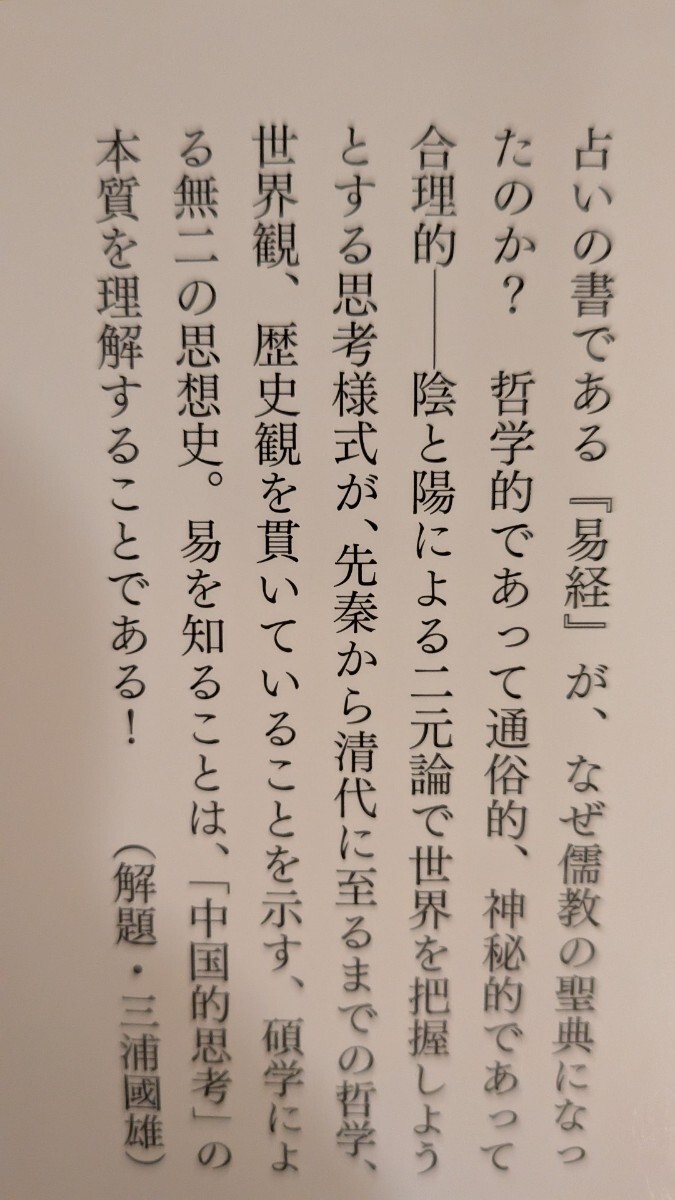 占いの書である『易経』が、なぜ儒教の聖典になっ
たのか？　哲学的であって通俗的、神秘的であって
合理的――陰と陽による二元論で世界を把握しよう
とする思考様式が、先秦から清代に至るまでの哲学、
世界観、歴史観を貫いていることを示す、碩学によ
る無二の思想史。易を知ることは、「中国的思考」の
本質を理解することである！　（解題・三浦國雄）